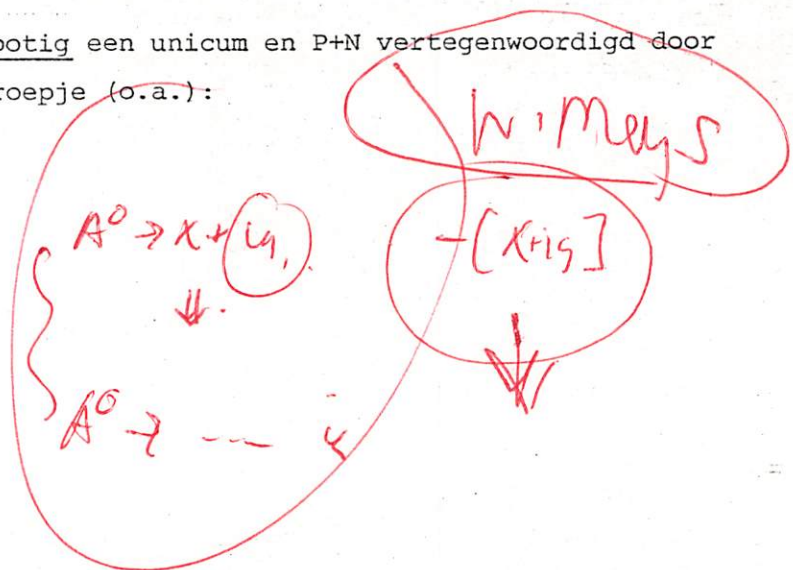 ootig een unicum en P+N vertegenwoordigd door
roepje (o.a.):
W. Meys
A° → X + ig
-[X+ig]
A° → ---